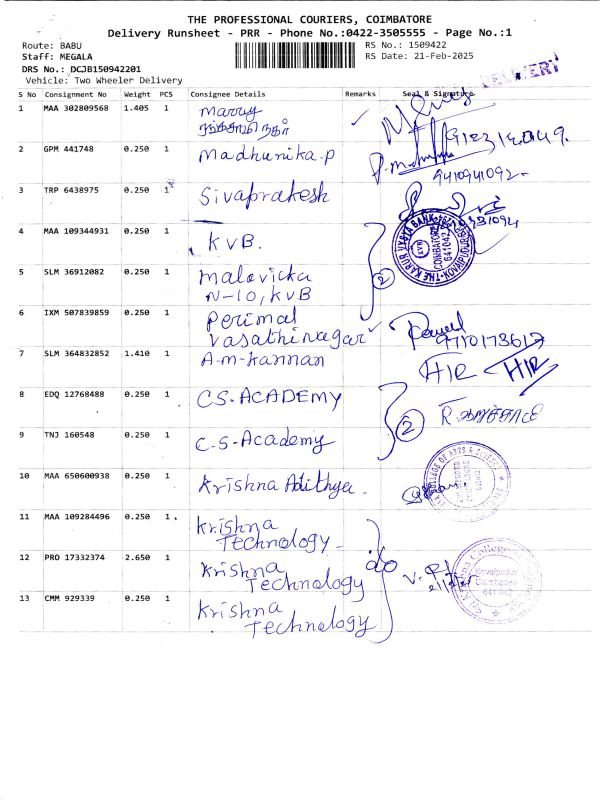 THE PROFESSIONAL COURIERS, COIMBATORE
Delivery Runsheet - PRR - Phone No.:0422-3505555 - Page No.:1
Route: BABU
RS No.: 1509422
Staff: MEGALA
RS Date: 21-Feb-2025
DRS No.: DCJB150942201
Vehicle: Two Wheeler Delivery
S No Consignment No Weight PCS Consignee Details Remarks Seal & Signature
1 MAA 302809568 1.405 1 marry
2 GPM 441748 0.250 1 Madhunika.p
9410941092-
3 TRP 6438975 0.250 1 Sivaprakesh
4 MAA 109344931 0.250 1 KVB.
5 SLM 36912082 0.250 1 malavicka
N-10, KVB
2
6 IXM 507839859 0.250 1 Perimal
vasathi nagar
7 SLM 364832852 1.410 1 A-m-kannan
HIR HIR
8 EDQ 12768488 0.250 1 CS-ACADEMY
9 TNJ 160548 0.250 1 C.S-Academy
2
10 MAA 650600938 0.250 1 Krishna Adithya.
11 MAA 109284496 0.250 1 Krishna
Technology-
12 PRO 17332374 2.650 1 Krishna
Technology
13 CMM 929339 0.250 1 Krishna
Technology
Kovaipudur
Coimbatore
641 042